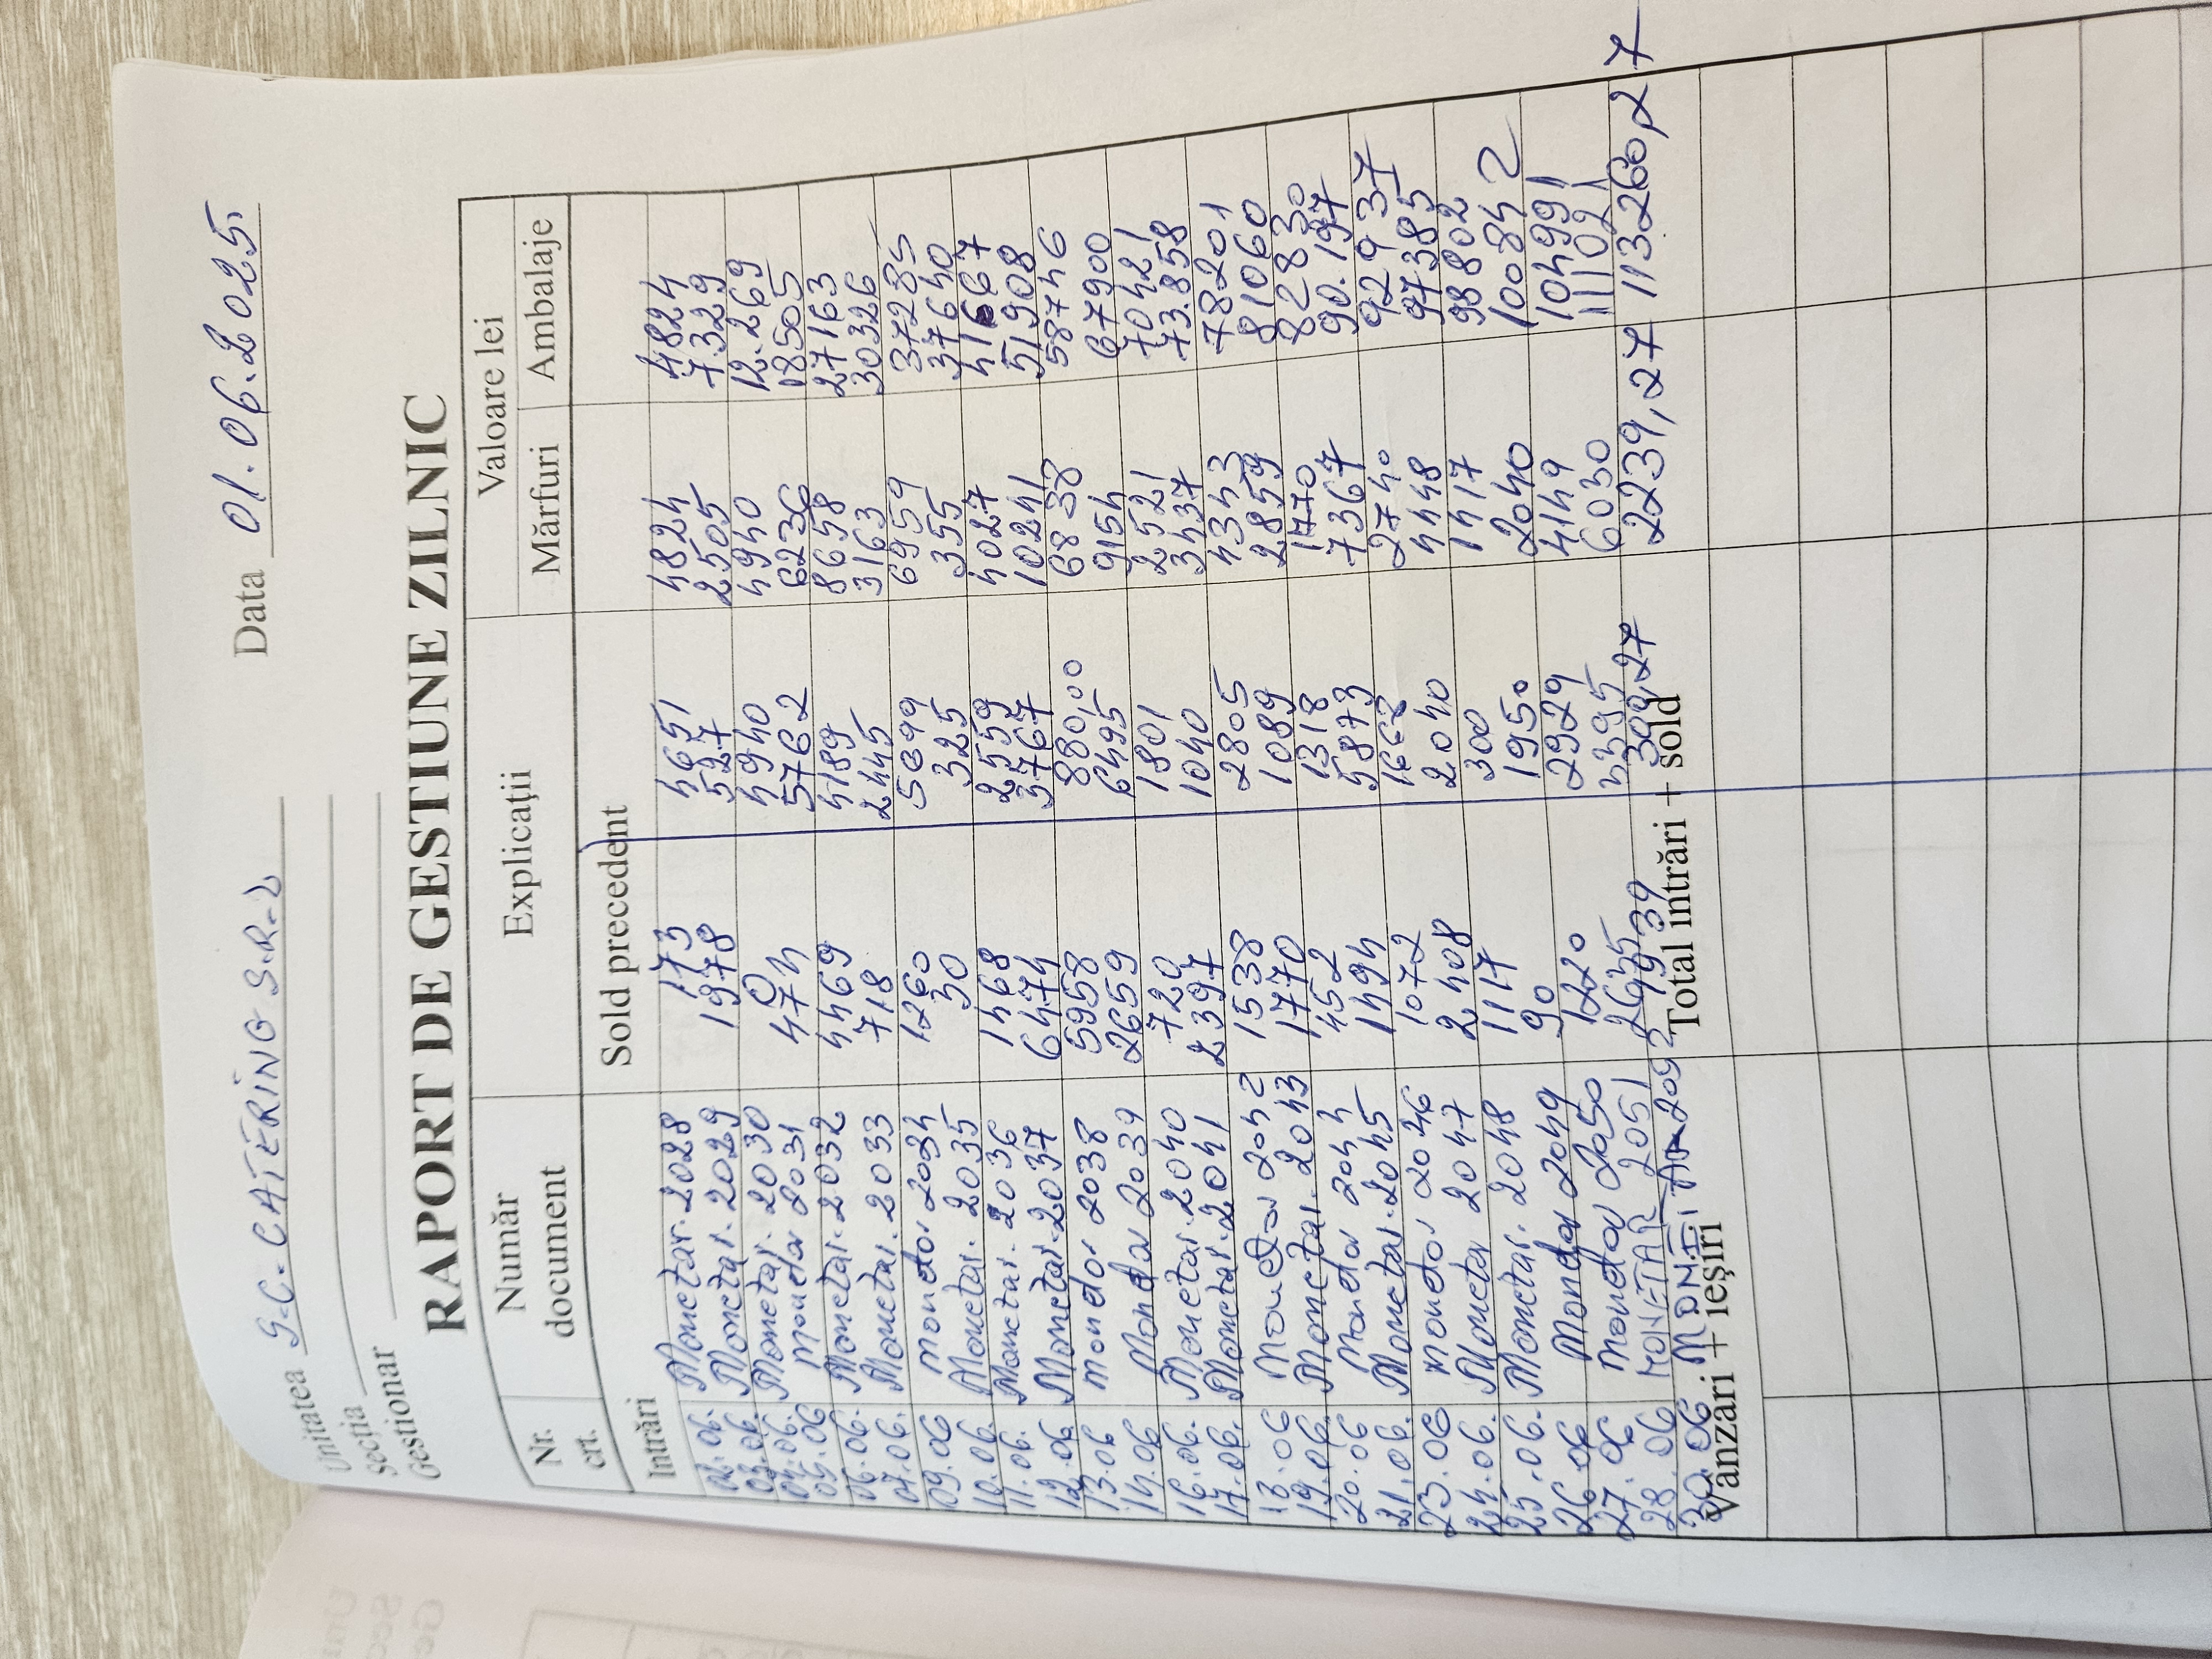 Unitatea S.C. CATERING S.R.L Data 01.06.2025
Secția
Gestionar
RAPORT DE GESTIUNE ZILNIC
Nr. crt. Număr document Explicații Valoare lei
Mărfuri Ambalaje
Sold precedent
Intrări
02.06. Monetar. 2028 173 4651 4824 4824
03.06. Monetar. 2029 1978 527 2505 7.329
04.06. Monetar. 2030 0 4940 4940 12.269
05.06 Monetar 2031 474 5762 6236 18505
06.06. Monetar. 2032 4469 4189 8658 27163
07.06. Monetar. 2033 718 2445 3163 30326
09.06 Monetar 2034 1260 5699 6959 37285
10.06. Monetar. 2035 30 325 355 37640
11.06. Monetar. 2036 1468 2559 4027 41667
12.06 Monetar. 2037 6474 3767 10241 51908
13.06 Monetar 2038 5958 880,00 6838 58746
14.06 Monetar 2039 2659 6495 9154 67900
16.06. Monetar. 2040 720 1801 2521 70421
17.06. Monetar. 2041 2397 1040 3437 73.858
18.06 Monetar 2042 1538 2805 4343 78201
19.06. Monetar. 2043 1770 1089 2859 81060
20.06 Monetar 2044 452 1318 1770 82830
21.06. Monetar. 2045 1494 5873 7367 90.197
23.06 Monetar 2046 1072 1668 2740 92937
24.06. Monetar 2047 2408 2040 4448 97385
25.06. Monetar. 2048 1117 300 1417 98802
26.06 Monetar 2049 90 1950 2040 100842
27.06 Monetar 2050 1220 2929 4149 104991
28.06 MONETAR 2051 2635 3395 6030 111021
30.06 2052 39 309,27 2239,27 113260,27
Total intrări + sold
Vânzari + ieșiri